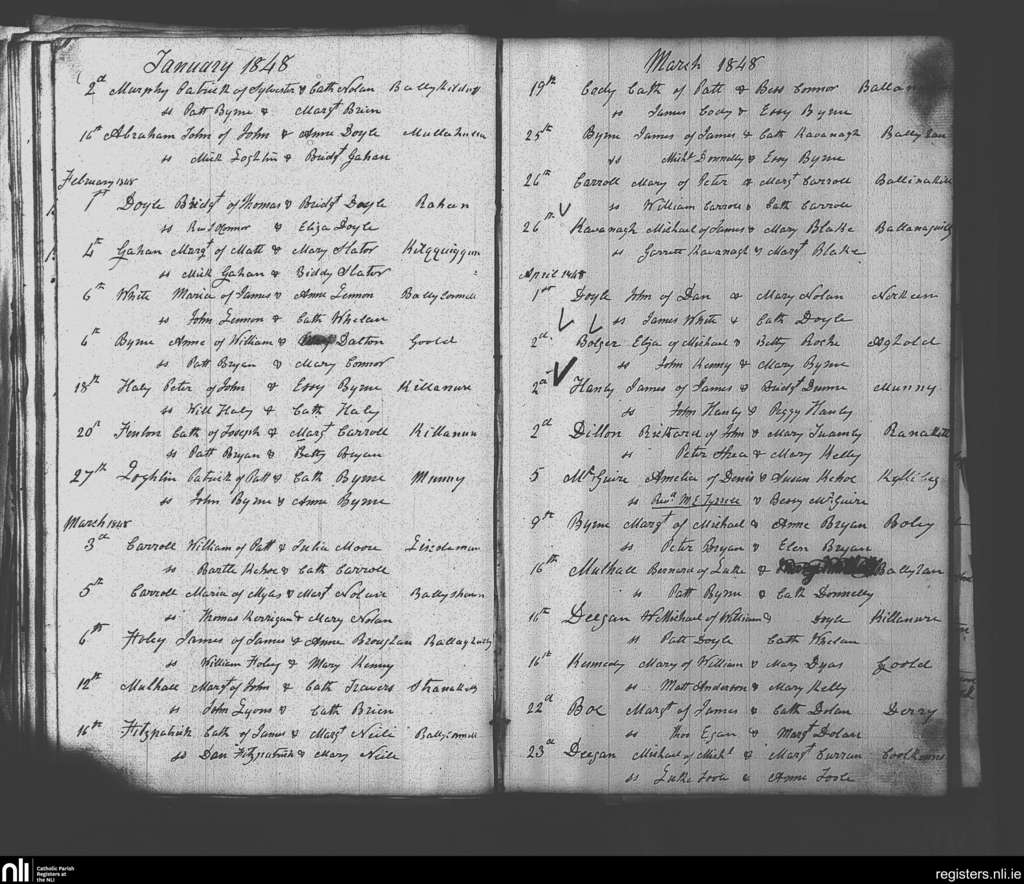 January 1848
2d Murphy Patrick of Sylvester & Cath Nolan
ss Patt Byrne & Margt Brien
16th Abraham John of John & Anne Doyle
ss Mick Loghlin & Bridgt Gahan
February 1848
1st Doyle Bridgt of Thomas & Bridgt Doyle Rahan
ss & Eliza Doyle
4th Gahan Margt of Matt & Mary Slator
ss Mick Gahan & Biddy Slator
6th White Maria of James & Anne Lennon Ballyconnell
ss John Lennon & Cath Whelan
6th Byrne Anne of William & Dalton Goold
ss Patt Bryan & Mary Connor
18th Haly Peter of John & Essy Byrne Killanure
ss Will Haly & Cath Haly
20th Fenlon Cath of Joseph & Margt Carroll Killanure
ss Patt Bryan & Betty Bryan
27th Loghlin Patrick of Patt & Cath Byrne Munny
ss John Byrne & Anne Byrne
March 1848
3d Carroll William of Patt & Julia Moore
ss Bartle Kehoe & Cath Carroll
5th Carroll Maria of Myas & Margt
ss Thomas Kerrigan & Mary Nolan
6th Foley James of James & Anne Broughan
ss William Foley & Mary Kenny
12th Mulhall Margt of John & Cath Travers
ss John Lyons & Cath Brien
16th Fitzpatrick Cath of James & Margt Neill Ballyconnell
ss Dan Fitzpatrick & Mary Neile
March 1848
19th Cody Cath of Patt & Bess Connor
ss James Cody & Essy Byrne
25th Byrne James of James & Cath Kavanagh
ss Michl Donnelly & Essy Byrne
26th Carroll Mary of Peter & Margt Carroll
ss William Carroll & Cath Carroll
26th Kavanagh Michael of James & Mary Blake
ss Garrett Kavanagh & Margt Blake
April 1848
1st Doyle John of Dan & Mary Nolan
ss James White & Cath Doyle
2d Bolger Eliza of Michael & Betty Roche Aghold
ss John Kenny & Mary Byrne
2d Hanly James of James & Bridgt Dunne Munny
ss John Hanly & Peggy Hanly
2d Dillon Richard of John & Mary Twamly
ss Peter Shea & Mary Kelly
5 McGuire Amelia of Denis & Susan Kehoe
ss Revd & Bessy McGuire
9th Byrne Margt of Michael & Anne Bryan Boley
ss Peter Bryan & Elen Bryan
16th Mulhall Bernard of Luke &
ss Patt Byrne & Cath Donnelly
16th Deegan Michael of William & Doyle Killanure
ss Patt Doyle Cath Whelan
16th Kennedy Mary of William & Mary Dyas Goold
ss Matt Anderson & Mary Kelly
22d Boe Margt of James & Cath Dolan Derry
ss Thos Egan & Margt Dolan
23d Deegan Michael of Michl & Margt Curran
ss Luke Toole & Anne Toole
nli Catholic Parish
Registers at
the NLI
registers.nli.ie